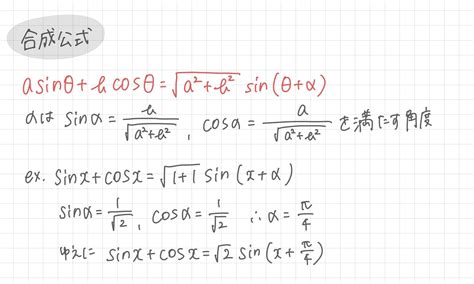 合成公式
asinθ+bcosθ=√(a²+b²) sin(θ+α)
αは sinα=b/√(a²+b²), cosα=a/√(a²+b²) を満たす角度
ex. sinx+cosx=√(1+1) sin(x+α)
sinα=1/√2, cosα=1/√2 ∴α=π/4
ゆえに sinx+cosx=√2 sin(x+π/4)